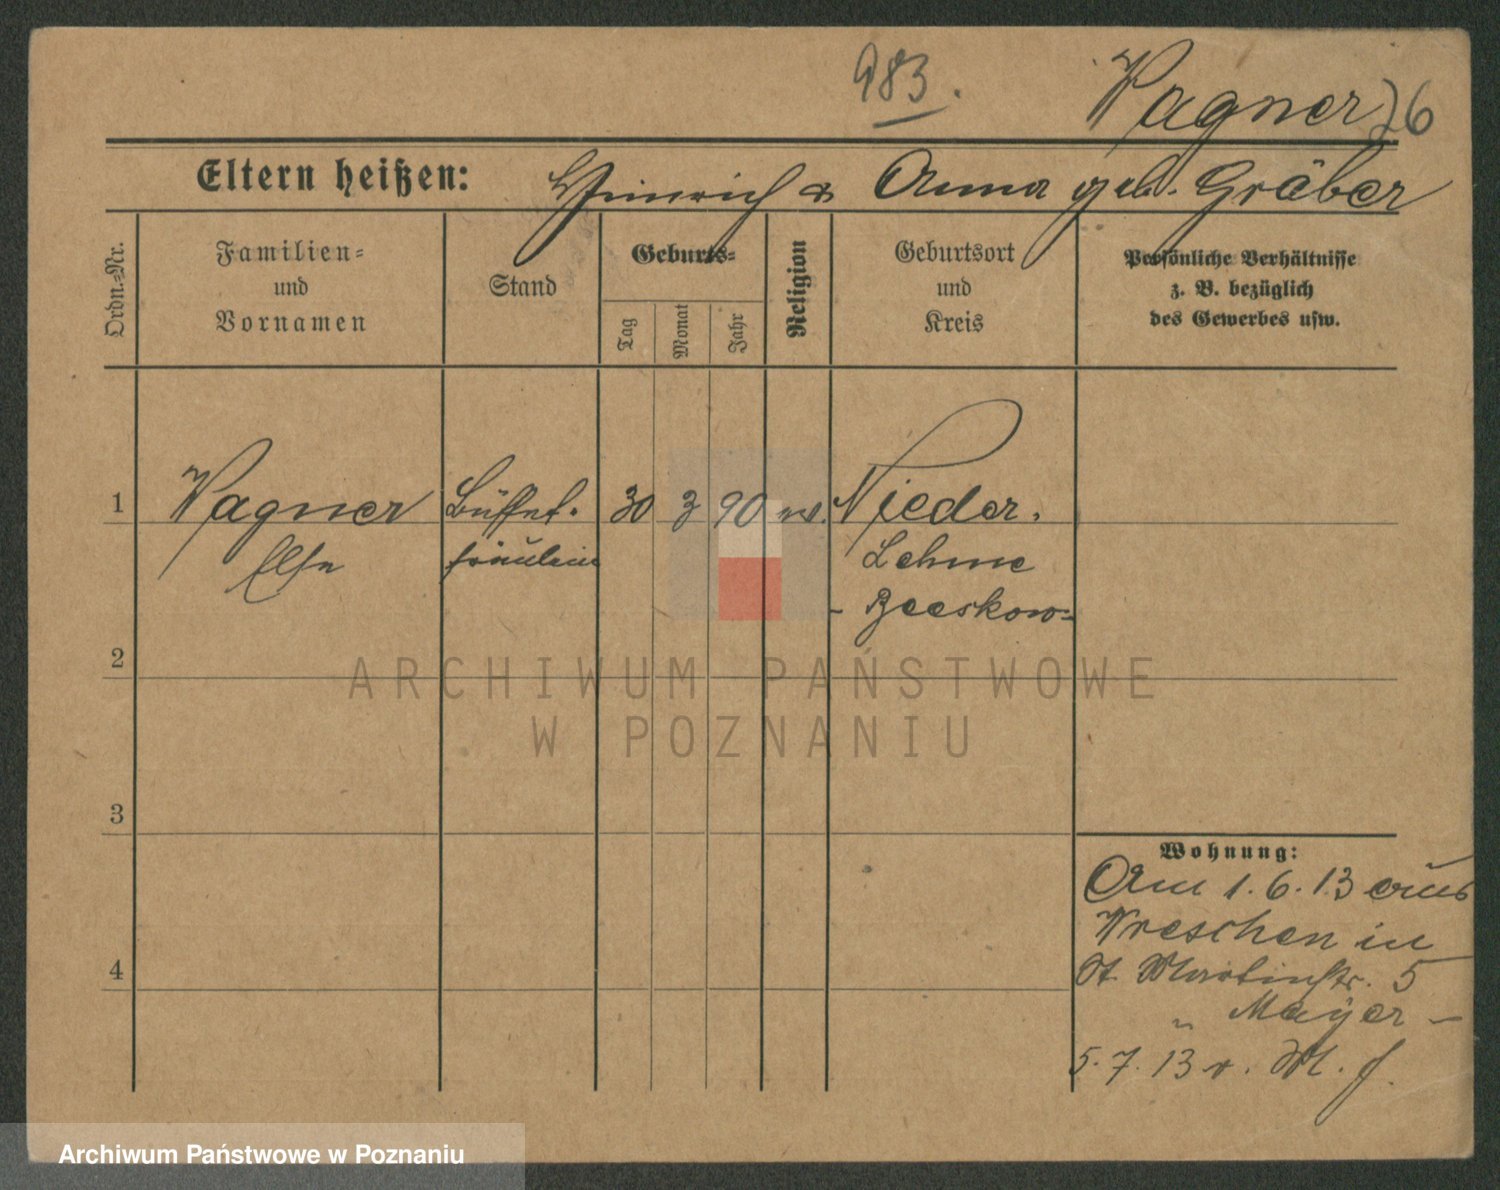 983.
Wagner 76
Eltern heißen: Heinrich & Anna geb. Gräber
Ordn.-Nr.
Familien-
und
Vornamen
Stand
Geburts-
Tag
Monat
Jahr
Religion
Geburtsort
und
Kreis
Persönliche Verhältnisse
z. B. bezüglich
des Gewerbes usw.
1 Wagner Büffet- 30 3 90 ev. Nieder-
Else fräulein Lehme
- Beeskow-
2
3
4
Wohnung:
Am 1.6.13 aus
Wreschen in
St. Martinstr. 5
" Mayer -
5.7.13 v.
ARCHIWUM PAŃSTWOWE
W POZNANIU
Archiwum Państwowe w Poznaniu